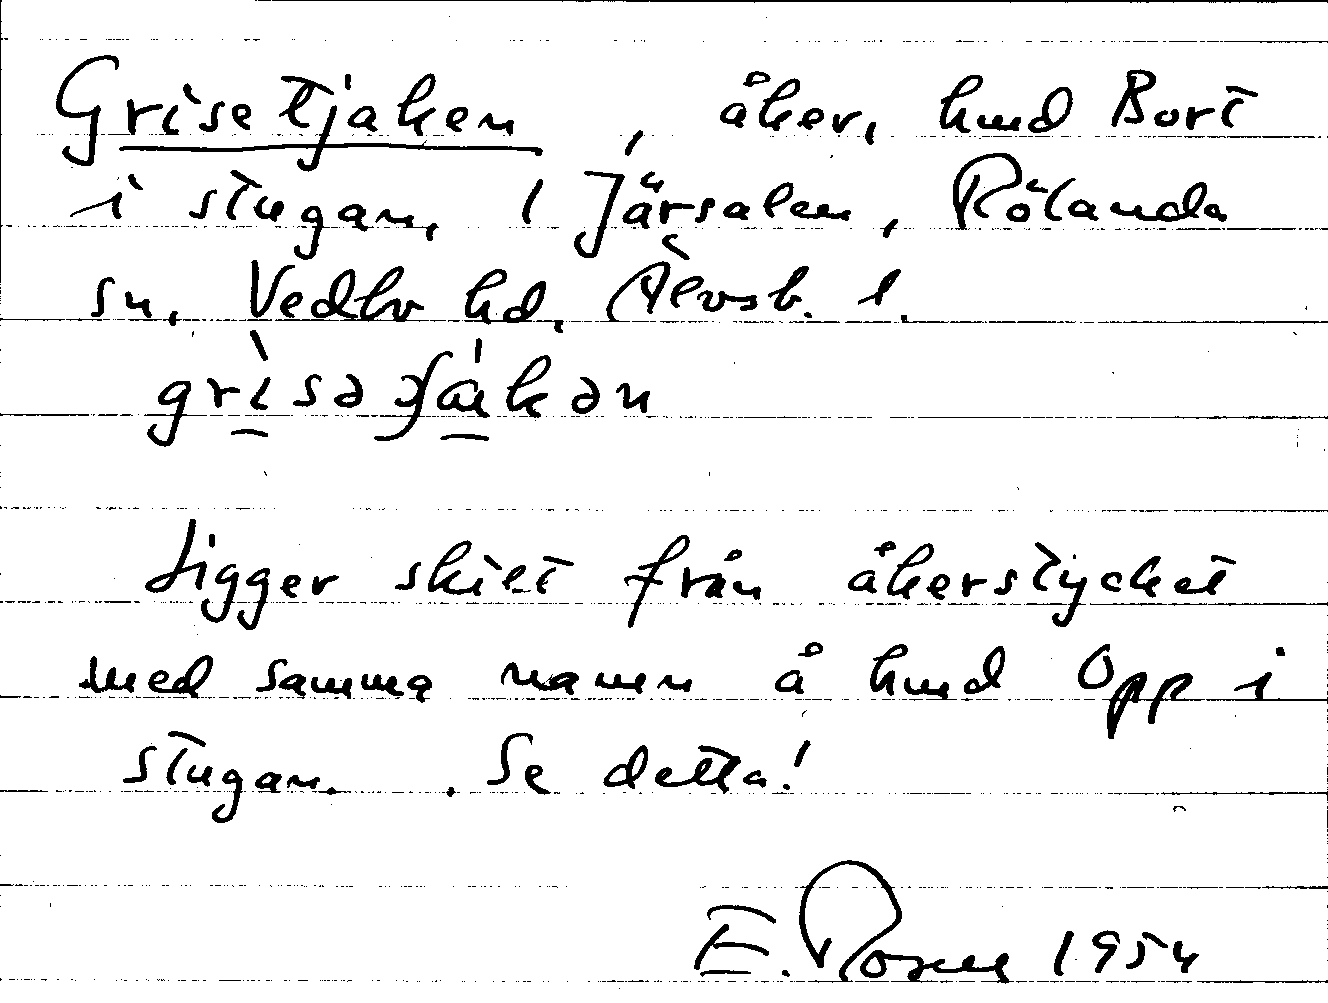 Grisetjaken, åker, hmd Bort
i stugan, 1 Järsalen, Rölanda
sn, Vedbo hd, Älvsb. l.
Ligger skilt från åkerstycket
med samma namn å hmd Opp i
stugan. Se detta!
E. Rosell 1954